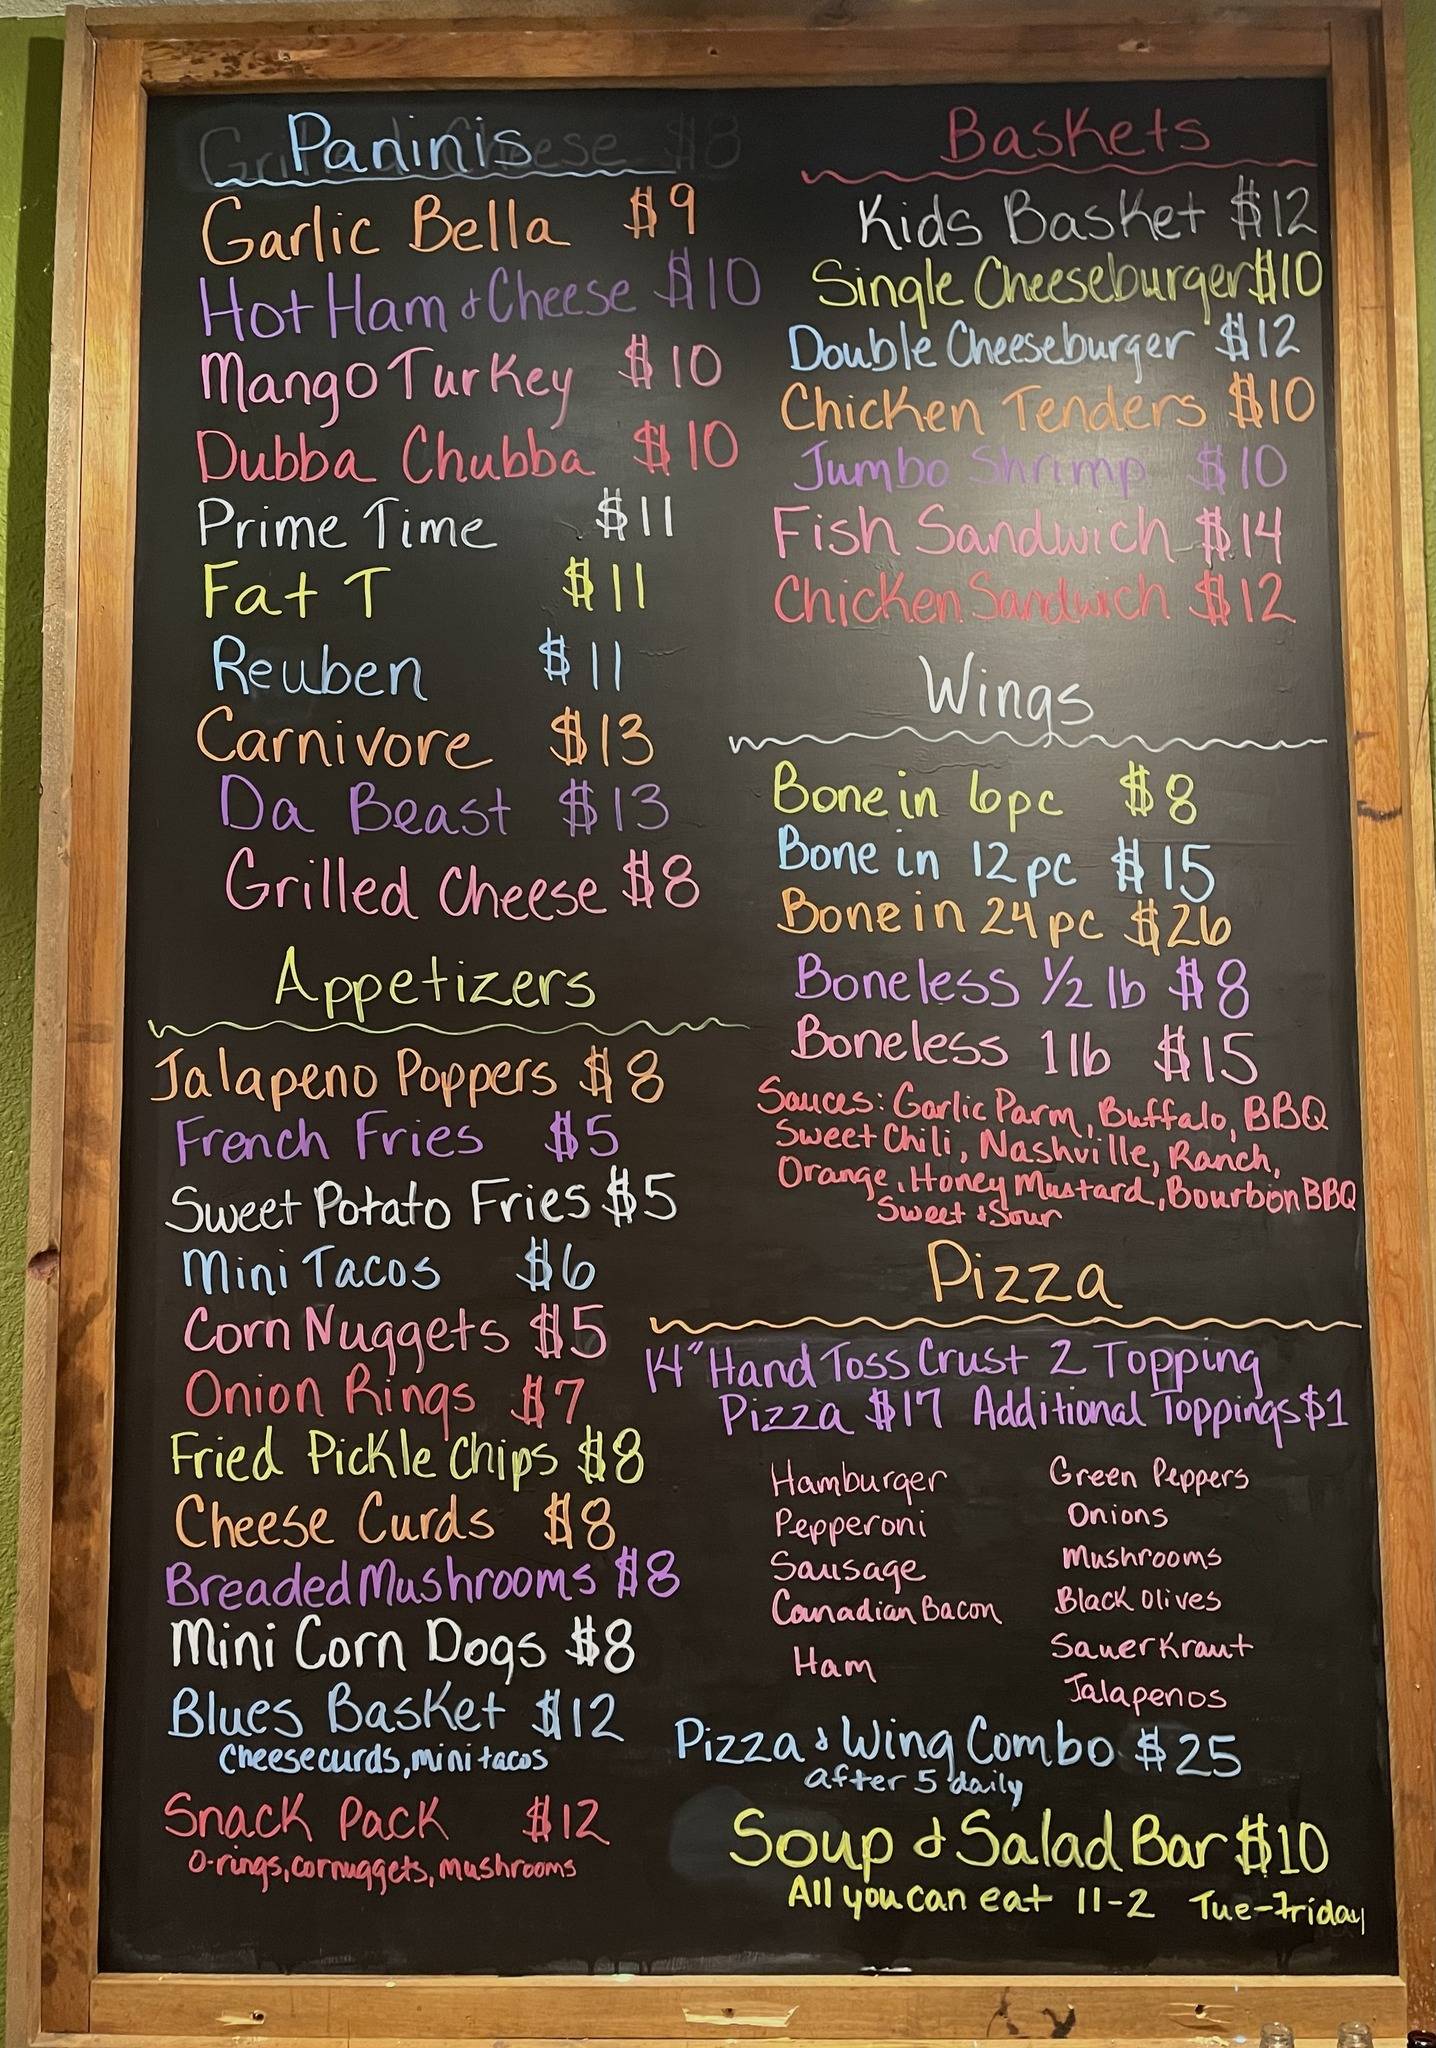 Paninis
Garlic Bella $9
Hot Ham & Cheese $10
Mango Turkey $10
Dubba Chubba $10
Prime Time $11
Fat T $11
Reuben $11
Carnivore $13
Da Beast $13
Grilled Cheese $8
Appetizers
Jalapeno Poppers $8
French Fries $5
Sweet Potato Fries $5
Mini Tacos $6
Corn Nuggets $5
Onion Rings $7
Fried Pickle Chips $8
Cheese Curds $8
Breaded Mushrooms $8
Mini Corn Dogs $8
Blues Basket $12
Cheesecurds, mini tacos
Snack Pack $12
O-rings, cornuggets, mushrooms
Baskets
Kids Basket $12
Single Cheeseburger $10
Double Cheeseburger $12
Chicken Tenders $10
Jumbo Shrimp $10
Fish Sandwich $14
Chicken Sandwich $12
Wings
Bone in 6pc $8
Bone in 12pc $15
Bone in 24pc $26
Boneless 1/2 lb $8
Boneless 1 lb $15
Sauces: Garlic Parm, Buffalo, BBQ
Sweet Chili, Nashville, Ranch,
Orange, Honey Mustard, Bourbon BBQ
Sweet & Sour
Pizza
14" Hand Toss Crust 2 Topping
Pizza $17 Additional Toppings $1
Hamburger
Pepperoni
Sausage
Canadian Bacon
Ham
Green Peppers
Onions
Mushrooms
Black Olives
Sauerkraut
Jalapenos
Pizza & Wing Combo $25
after 5 daily
Soup & Salad Bar $10
All you can eat 11-2 Tue-Friday
Grilled Cheese $8